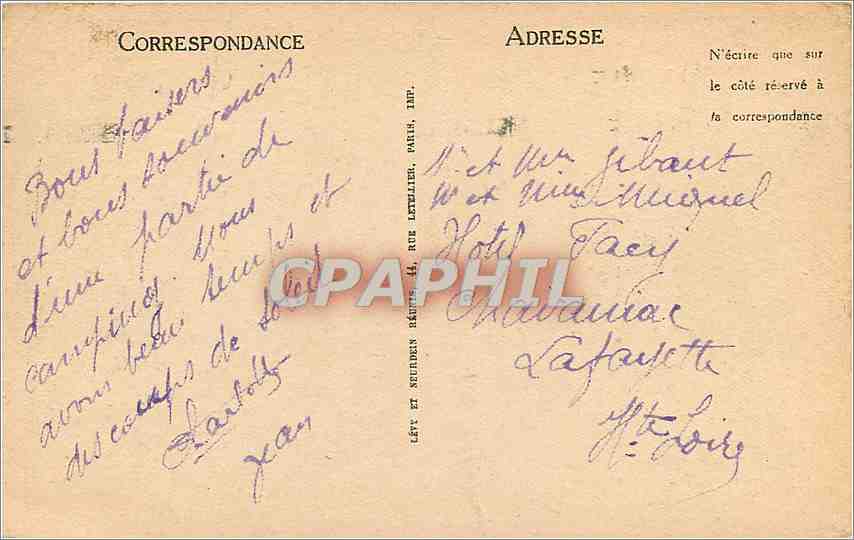 CORRESPONDANCE
Bons baisers
et bons souvenirs
d'une partie de
camping. Nous
avons beau temps et
des coups de soleil
Jean
ADRESSE
N'écrire que sur
le côté réservé à
la correspondance
LÉVY ET NEURDEIN RÉUNIS, 44, RUE LETELLIER, PARIS, IMP.
Mr et Mme Gibaut
Mr et Mme Miquel
Hotel Tacy
Chavaniac
Lafayette
Hte Loire
CPAPHIL